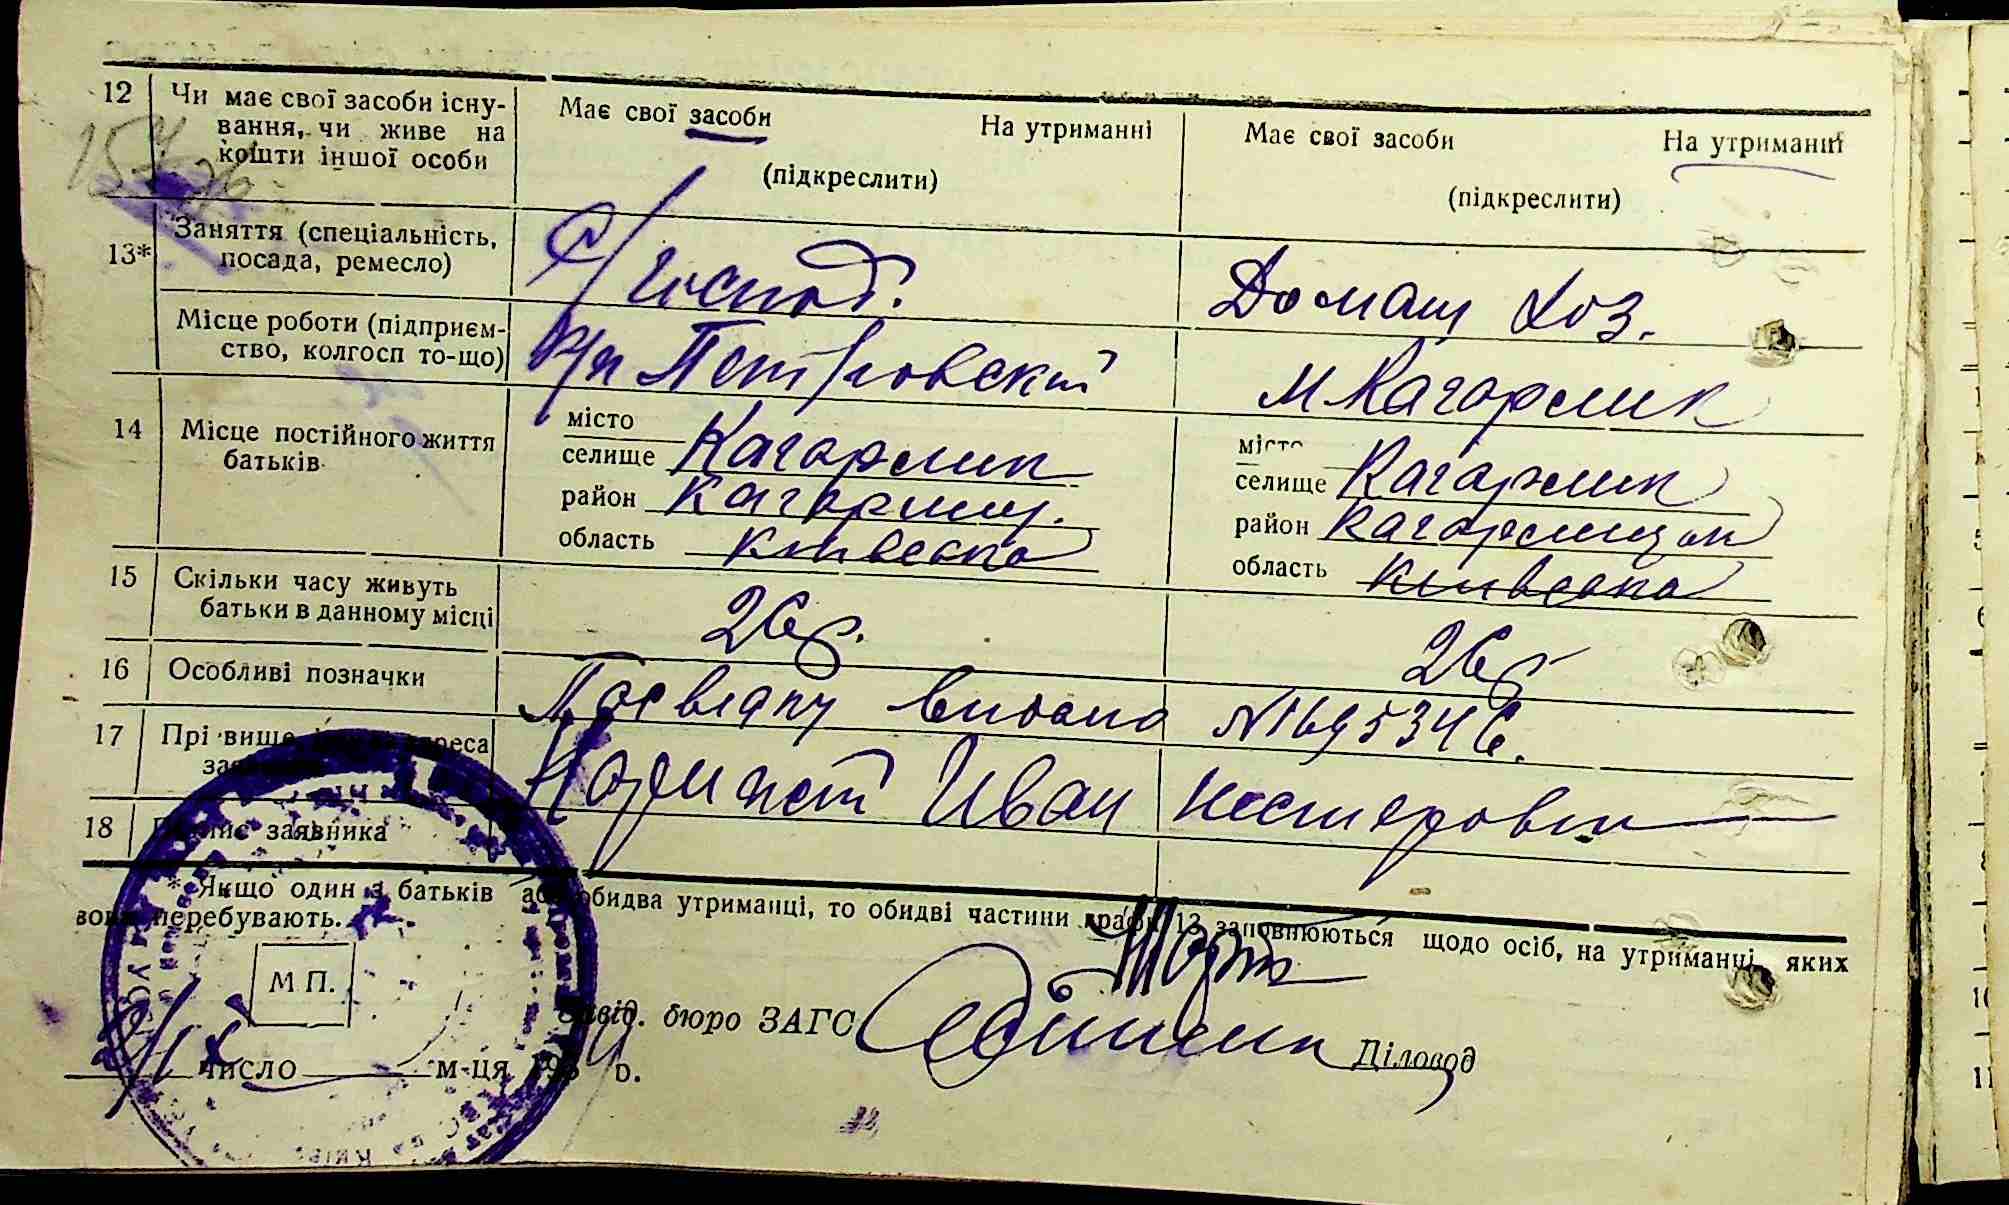 12 Чи має свої засоби існу-
вання, чи живе на
кошти іншої особи
Має свої засоби На утриманні
(підкреслити)
Має свої засоби На утриманні
(підкреслити)
13* Заняття (спеціальність,
посада, ремесло)
С/господ.
Домаш хоз.
Місце роботи (підприєм-
ство, колгосп то-що)
Петровскі
м Кагарлик
14 Місце постійного життя
батьків
місто
селище Кагарлик
район Кагарлиц.
область Київська
місто
селище Кагарлик
район Кагарлицьк
область Київська
15 Скільки часу живуть
батьки в данному місці
26 р.
26 р
16 Особливі позначки
видано № 695346.
17 Прізвище адреса
Иван Нестерович
18 Підпис заявника
* Якщо один з батьків або обидва утриманці, то обидві частини графи 13 заповнюються щодо осіб, на утриманці, яких
вони перебувають.
М П.
Завід. бюро ЗАГС
Діловод
число м-ця 193 р.